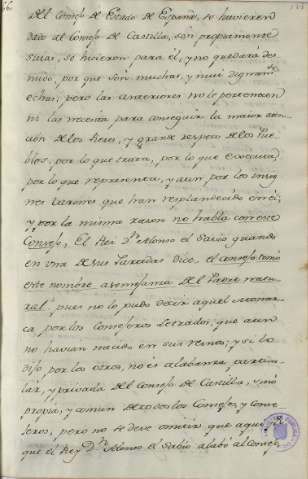 del Consejo de Estado de España, se huvieren
dado al Consejo de Castilla, son propiamente
suias, se hicieron para él, y no quedará des
nudo, por que son muchas, y mui dignam.te
echas, pero las anteriores no le pertenecen
ni las necesita para conseguir la maior aten
cion de los Reies, y grande respeto de los Pue
blos, por lo que trata, por lo que evacua,
por lo que representa, y aun por los insig
nes varones que han resplandecido en él;
y por la misma razon no habla con este
Consejo, El Rei D.n Alonso el Savio quando
en una de sus Partidas dice, el consejo tomó
este nombre a semejanza del Padre natu
ral, pues no lo pudo decir aquel Monar
ca, por los Consejeros Letrados, que aun
no havian nacido en sus Reinos, y si lo
dijo, por los otros, no es alabanza particu
lar, y privada del Consejo de Castilla, y sí
propia, y comun de todos los Consejos, y conse
jeros, pero no se deve omitir que aqui
que el Rey D.n Alonso el Sabio alabó al Consej